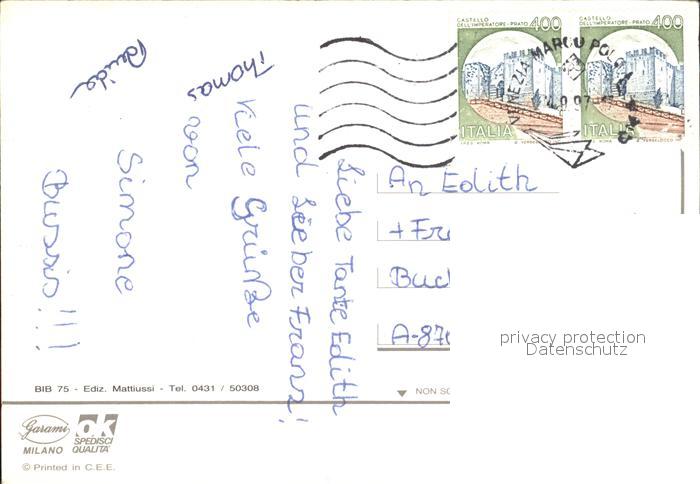 Liebe Tante Edith
und Lieber Franz!
Viele Grüße
von
Simone
Bussis!!!
Thomas
CASTELLO DELL'IMPERATORE-PRATO 400
ITALIA
CASTELLO DELL'IMPERATORE-PRATO 400
ITALIA
VENEZIA MARCO POLO
An Edith
+ Fr
Buc
A-87
privacy protection
Datenschutz
BIB 75 - Ediz. Mattiussi - Tel. 0431 / 50308
NON SC
Garami
MILANO
ok
SPEDISCI
QUALITA'
© Printed in C.E.E.